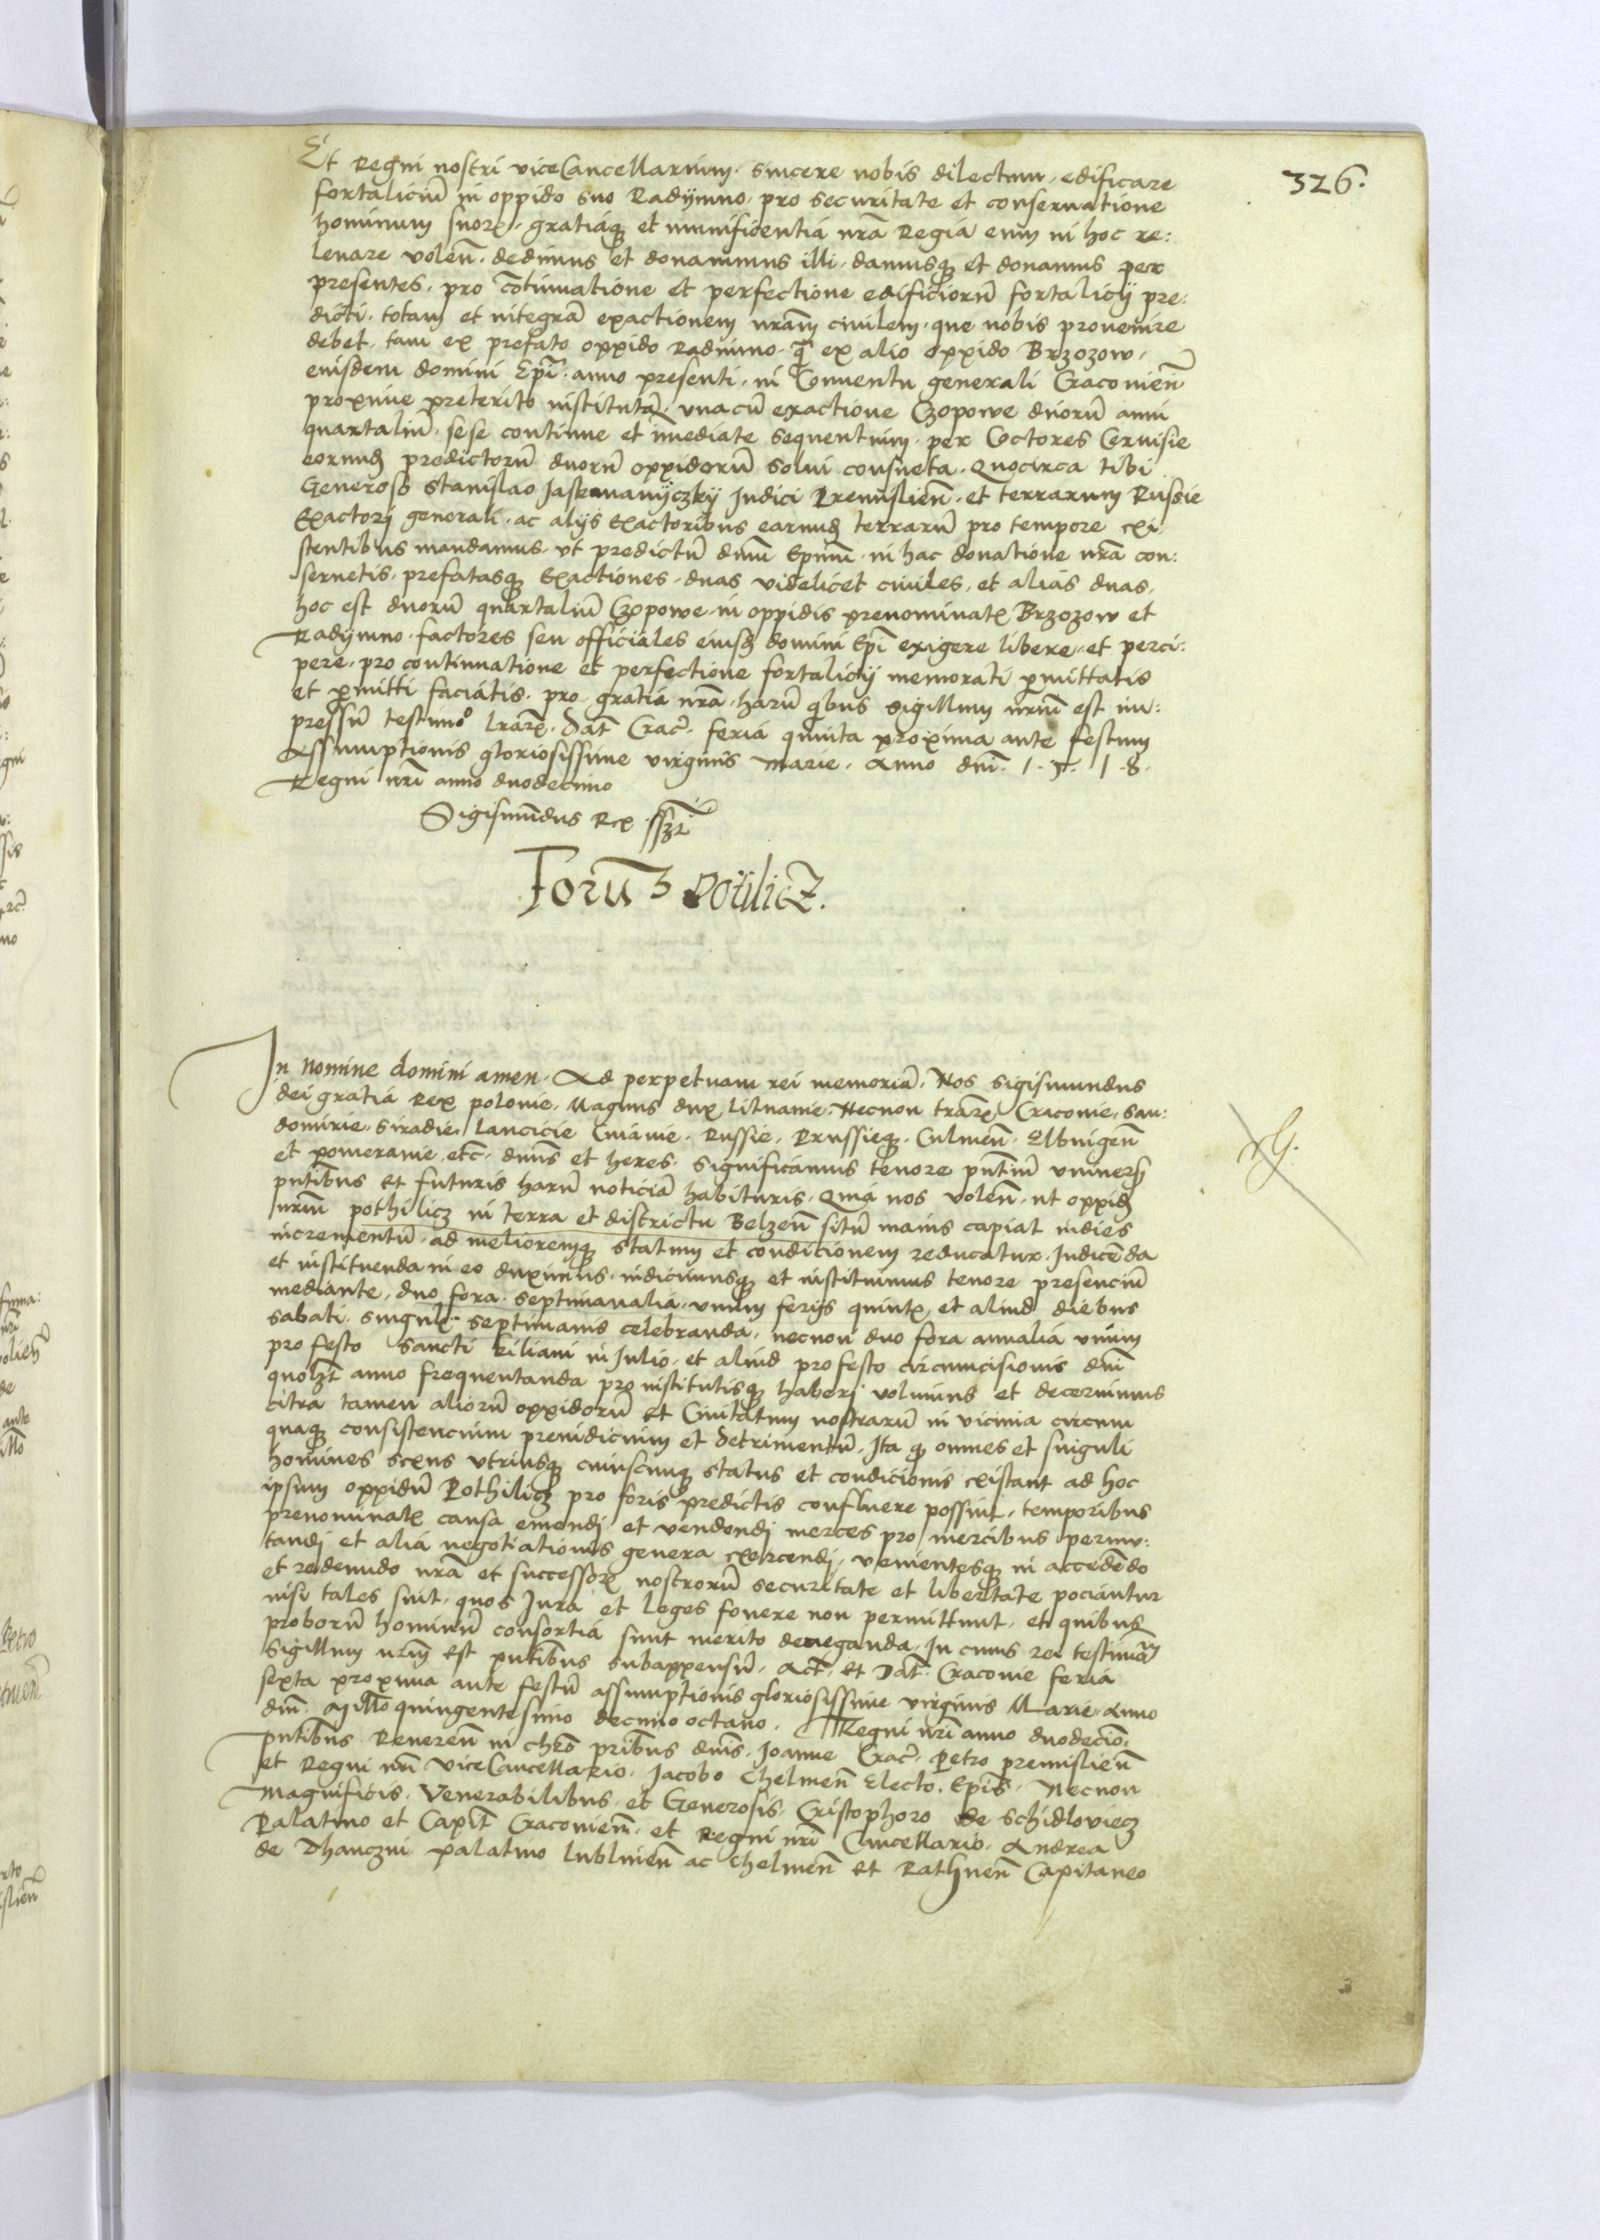 326.
Et Regni nostri viceCancellarium. sincere nobis dilectum, edificare
fortaliciũ in oppido suo Radÿmno. pro securitate et conseruatione
hominum suoꝝ. gratiáqꝫ et munificentiá nr̃a Regiá eum in hoc re:
leuare volen̄. dedimus et donauimus illi. damusqꝫ et donamus per
presentes, pro cõtinuatione et perfectione edificiorũ fortalicij pre:
dicti. totam et integrã exactionem nr̃am ciuilem. que nobis prouenire
debet. tam ex prefato oppido Radimno. q̃ ex alio oppido Brzozow,
eiusdem domini Ep̃i. anno presenti. in Conuentu generali Cracouien̄
proxime preterito institutã. vnacũ exactione Czopowe duorũ anni
quartaliũ. sese continue et im̄ediate sequentium. per Coctores Ceruisie
eorundꝫ predictorũ duorũ oppidorũ solui consueta. Quocirca tibi
Generoso Stanislao Jaskmanÿczkÿ Judici Premislien̄. et terrarum Russie
Exactori generali. ac alijs Exactoribus earundꝫ terrarũ pro tempore exi
stentibus mandamus. vt predictũ dnũm Epũm. in hac donatione nr̃a con:
seruetis. prefatasqꝫ Exactiones. duas videlicet ciuiles, et alias duas,
hoc est duorũ quartaliũ Czopowe. in oppidis prenominatꝫ Brzozow et
Radÿmno. factores seu officiales eiusdꝫ domini Ep̃i exigere libere, et perci:
pere. pro continuatione et perfectione fortalicij memorati p̱mittatis
et p̱mitti faciátis. pro gratiá nr̃a. harũ q̃bus sigillum nr̃um est im:
pressũ testimoº lr̃arꝫ. Dat̃ Crac̃. feriá quinta proxima ante festum
Assumptionis gloriosissime virginis Marie. Anno dñi. 1.5.1.8.
Regni nr̃i anno duodecimo
Sigismũdus Rex sszt
Forũ 3 Potÿlicz.
In Nomine domini amen. Ad perpetuam rei memoriã. Nos Sigismundus
dei gratiá Rex polonie. Magnus dux lituanie. Necnon trãrꝫ Cracouie, San:
domirie. Siradie. Lancicie Cuiauie. Russie. Prussieqꝫ. Culmen̄. Elbingen̄
et pomeranie etc̃. dnũs et heres. Significámus tenore pñtiũ vniuersꝫ
pñtibus et futuris harũ noticiã habituris. Quiá nos volen̄. ut oppidꝫ
nr̃um pothilicz in terra et districtu Belzen̄ sitũ maius capiat indies
incrementũ. ad melioremqꝫ statum et condicionem reducatur. Indicẽda
et instituenda in eo duximus. indicimusqꝫ et instituimus tenore presenciũ
mediante. duo fora. septimanaliá. vnum ferijs quintꝫ, et aliud diebus
sabati. singulꝫ septimanis celebranda, necnon duo fora annaliá vnum
pro festo Sancti Kiliani in Julio. et aliud pro festo circumcisionis dñi
quolꝫt anno frequentanda pro institutisqꝫ haberi volumus et decernimus
citra tamen aliorũ oppidorũ et Ciuitatum nostrarũ in vicinia circum
quaqꝫ consistencium preiudicium et detrimentũ. Ita qꝫ omnes et singuli
homines sexus vtriusqꝫ cuiuscunqꝫ status et condicionis existant ad hoc
ipsum oppidũ Pothilicz pro foris predictis confluere possint. temporibus
prenominatꝫ causa emendi et vendendi merces pro mercibus permu:
tandi et aliá negotiationis genera exercendi. Venientesqꝫ in accedẽdo
et redeundo nr̃a et successorꝫ nostrorũ securitate et libertate pociántur
nisi tales sint. quos Jura et leges fouere non permittunt. et quibus
proborũ hominũ consortiá sunt merito deneganda. In cuius rei testimõm
sigillum nr̃um est pñtibus subappensũ. Act̃. et Dat̃. Cracouie feriá
sexta proxima ante festũ assumptionis gloriosissime virginis Marie. Anno
dñi. Millo quingentesimo decimo octauo. Regni nr̃i anno duodecio.
pñtibus Reueren̄ in chr̃o pr̃ibus dñis. Joanne Crac̃. Petro premislien̄
et Regni nr̃i ViceCancellario. Jacobo Chelmen̄ Electo. Ep̃is. Necnon
Magnificis. Venerabilibus. et Generosis. Cristophoro de Schidloviecz
Palatino et Capit̃ Cracouien̄. et Regni nr̃i Cancellario. Andrea
de Thanczin palatino lublinen̄ ac Chelmen̄ et Rathnen̄ Capitaneo